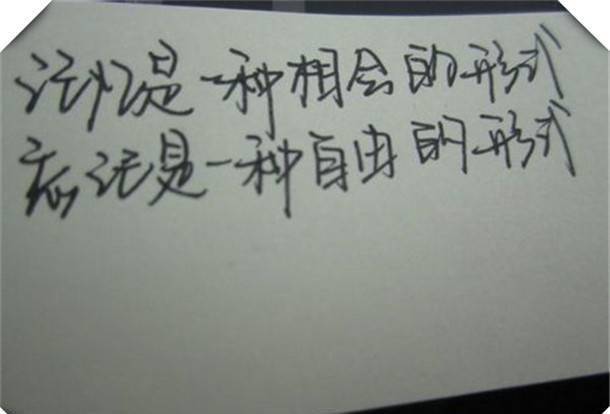 记忆是一种相会的形式
忘记是一种自由的形式